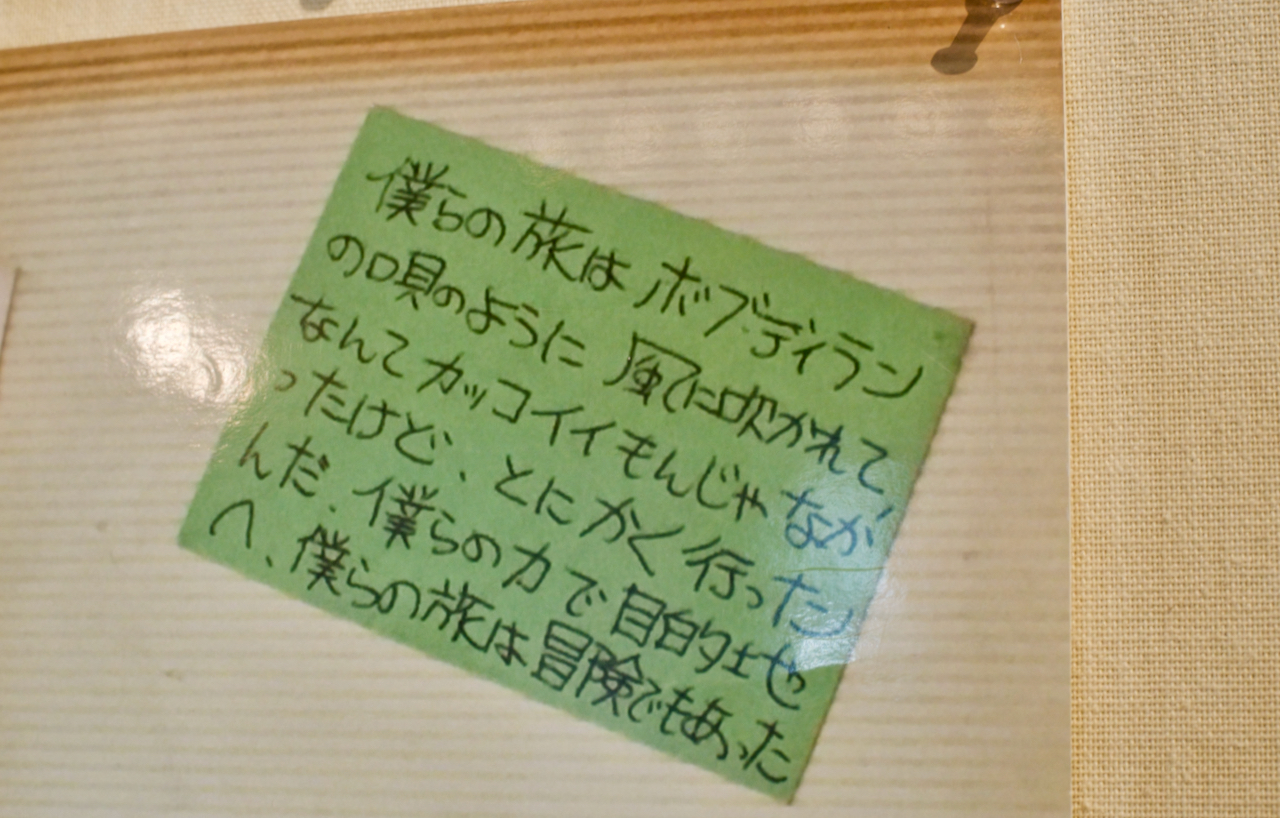 僕らの旅は ボブ・ディラン
の唄のように 風に吹かれて、
なんてカッコイイもんじゃなか
ったけど、とにかく行った
んだ. 僕らの力で目的地
へ、僕らの旅は冒険でもあった